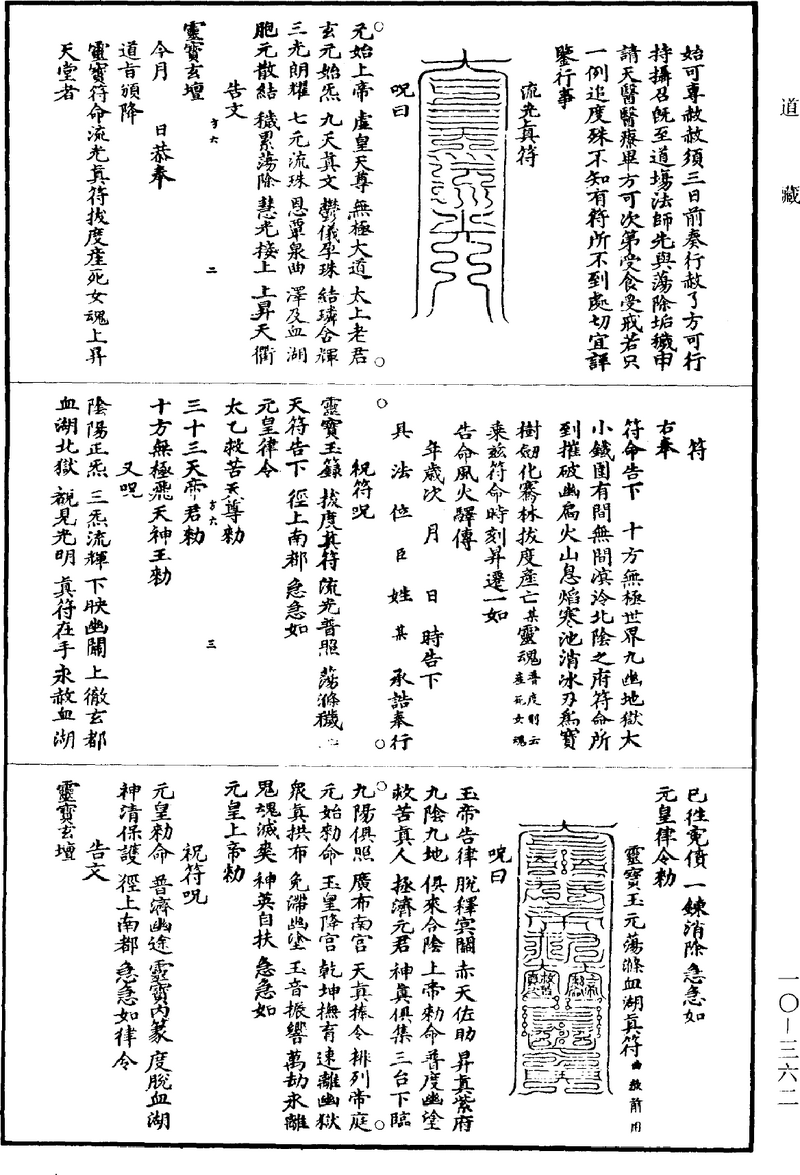 道藏
始可專赦赦須三日前奏行赦了方可行
持攝召既至道場法師先與蕩除垢穢申
請天醫醫療畢方可次第受食受戒若只
一例追度殊不知有符所不到處切宜詳
鑒行事
流光真符
呪曰
元始上帝 虛皇天尊 無極大道 太上老君
玄元始炁 九天真文 鬱儀孕珠 結璘含輝
三光朗耀 七元流珠 恩覃泉曲 澤及血湖
胞元散結 穢累蕩除 慧光接上 上昇天衢
告文
靈寶玄壇
方六
二
今月 日恭奉
道旨頒降
靈寶符命流光真符拔度產死女魂上昇
天堂者
符
右奉
符命告下 十方無極世界九幽地獄大
小鐵圍有間無間溟泠北陰之府符命所
到摧破幽扃火山息焰寒池消冰刃為寶
樹劒化騫林拔度產亡某靈魂普度則云產死女魂
乘茲符命時刻昇遷一如
告命風火驛傳
年歲次 月 日 時告下
具 法 位 臣 姓 某 承誥奉行
祝符呪
靈寶玉籙 拔度真符 流光普照 蕩滌穢
天符告下 徑上南都 急急如
元皇律令
太乙救苦天尊勑
方六
三
三十三天帝君勑
十方無極飛天神王勑
又呪
陰陽正炁 三炁流輝 下映幽關 上徹玄都
血湖北獄 覩見光明 真符在手 永赦血湖
已往冤債 一鍊消除急急如
元皇律令勑
靈寶玉元蕩滌血湖真符 赦前用
呪曰
玉帝告律 脫釋冥關 赤天佐助 昇真紫府
九陰九地 俱來合陰 上帝勑命 普度幽塗
救苦真人 拯濟元君 神真俱集 三台下臨
九陽俱照 廣布南宮 天真捧令 排列帝庭
元始勑命 玉皇降宮 乾坤撫育 速離幽獄
眾真拱布 免滯幽塗 玉音振響 萬劫永離
鬼魂滅爽 神英自扶 急急如
元皇上帝勑
祝符呪
元皇勑命 普濟幽途 靈寶內篆 度脫血湖
神清保護 徑上南都 急急如律令
告文
靈寶玄壇
一〇－三六二